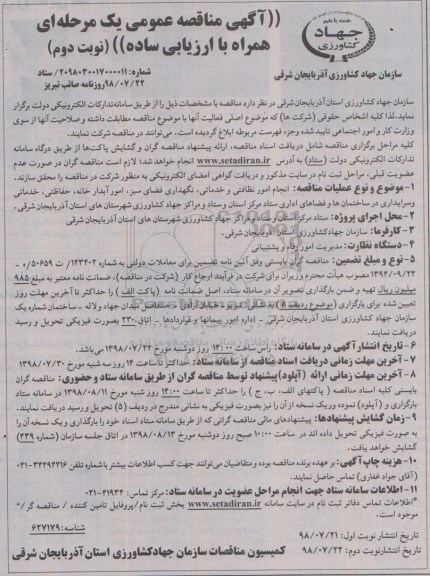 ((آگهی مناقصه عمومی یک مرحله‌ای
همراه با ارزیابی ساده)) (نوبت دوم)
همه با هم
جهاد
کشاورزی
سازمان جهاد کشاورزی آذربایجان شرقی
شماره: ۲۰۹۸۰۳۰۰۱۷۰۰۰۰۱۱ / ستاد
۹۸/۰۷/۲۲ روزنامه صائب تبریز
سازمان جهاد کشاورزی استان آذربایجان شرقی در نظر دارد مناقصه با مشخصات ذیل را از طریق سامانه تدارکات الکترونیکی دولت برگزار
نماید. لذا کلیه اشخاص حقوقی (شرکت ها) که موضوع اصلی فعالیت آنها با موضوع مناقصه مطابقت داشته و صلاحیت آنها از سوی
وزارت کار و امور اجتماعی تایید شده وجزء فهرست مربوطه ابلاغ گردیده است، می‌توانند در مناقصه شرکت نمایند.
کلیه مراحل برگزاری مناقصه شامل دریافت اسناد مناقصه، ارائه پیشنهاد مناقصه گران و گشایش پاکت‌ها از طریق درگاه سامانه
تدارکات الکترونیکی دولت (ستاد) به آدرس www.setadiran.ir انجام خواهد شد؛ لازم است مناقصه گران در صورت عدم
عضویت قبلی، مراحل ثبت نام در سایت مذکور و دریافت گواهی امضای الکترونیکی به منظور شرکت در مناقصه را محقق سازند.
۱- موضوع و نوع عملیات مناقصه: انجام امور نظافتی و خدماتی، نگهداری فضای سبز، امور آبدار خانه، حفاظتی، خدماتی
وسرایداری در ساختمان ها و فضاهای اداری ستاد مرکز استان وستاد و مراکز جهاد کشاورزی شهرستان های استان آذربایجان شرقی.
۲- محل اجرای پروژه: ستاد مرکز استان و ستاد و مراکز جهاد کشاورزی شهرستان های استان آذربایجان شرقی
۳- کارفرما: سازمان جهاد کشاورزی استان آذربایجان شرقی.
۴- دستگاه نظارت: مدیریت امور رفاه و پشتیبانی
۵- نوع و مبلغ تضمین: مناقصه گران بایستی وفق آئین نامه تضمین برای معاملات دولتی به شماره ۱۲۳۴۰۲/ت ۵۰۶۵۹/ه -
۱۳۹۴/۰۹/۲۲ مصوب هیأت محترم وزیران برای شرکت در فرآیند ارجاع کار (شرکت در مناقصه)، ضمانت نامه معتبر به مبلغ ۹۸۵
میلیون ریال تهیه و ضمن بارگذاری تصویر آن در سامانه ستاد، اصل ضمانت نامه (پاکت الف) را حداکثر تا آخرین مهلت روز
تعیین شده برای بارگذاری (موضوع ردیف ۸) به نشانی تبریز - خیابان آزادی - حدفاصل میدان جهاد ولاله - ساختمان شماره یک
سازمان جهاد کشاورزی استان آذربایجان شرقی - اداره امور پیمانها و قراردادها - اتاق ۲۳۰ بصورت فیزیکی تحویل و رسید
دریافت نمایند.
۶- تاریخ انتشار آگهی در سامانه ستاد: راس ساعت ۱۴:۰۰ روز دوشنبه مورخ ۱۳۹۸/۰۷/۲۲ می‌باشد.
۷- آخرین مهلت زمانی دریافت اسناد مناقصه از سامانه ستاد: حداکثر تا ساعت ۱۴ روز سه شنبه مورخ ۱۳۹۸/۰۷/۳۰
۸- آخرین مهلت زمانی ارائه (آپلود) پیشنهاد توسط مناقصه گران از طریق سامانه ستاد و حضوری: مناقصه گران
بایستی کلیه اسناد مناقصه (پاکتهای الف، ب، ج) را حداکثر تا ساعت ۱۴:۰۰ روز شنبه مورخ ۱۳۹۸/۰۸/۱۱ در سامانه ستاد
بارگزاری و (آپلود) نموده وریک نسخه از آن را نیز بصورت فیزیکی به نشانی مندرج در ردیف (۵) تحویل و رسید دریافت نمایند.
۹- زمان گشایش پیشنهادها: پیشنهادهای مالی مناقصه گرانی که از طریق سامانه ستاد اسناد خود را بارگذاری و یک نسخه آن را
به صورت فیزیکی تحویل داده اند در ساعت ۱۰:۰۰ صبح روز دوشنبه مورخ ۱۳۹۸/۰۸/۱۳ در اتاق جلسه سازمان (شماره ۲۳۹)
گشایش خواهد یافت.
۱۰- هزینه چاپ آگهی: بر عهده برنده مناقصه بوده و متقاضیان می‌توانند جهت کسب اطلاعات بیشتر با شماره تلفن ۳۴۴۹۴۲۱۶-۰۴۱
(آقای جواد غفاری) تماس حاصل نمایند.
۱۱- اطلاعات سامانه ستاد جهت انجام مراحل عضویت در سامانه ستاد: مرکز تماس: ۴۱۹۳۴-۰۲۱
*اطلاعات تماس دفاتر ثبت نام در سایت سامانه www.setadiran.ir بخش ثبت نام / پروفایل تامین کننده / مناقصه گر/*
موجود است.
تاریخ انتشار نوبت اول: ۹۸/۰۷/۲۱
شناسه: ۶۲۷۱۷۹
تاریخ انتشار نوبت دوم: ۹۸/۰۷/۲۲
کمیسیون مناقصات سازمان جهاد کشاورزی استان آذربایجان شرقی